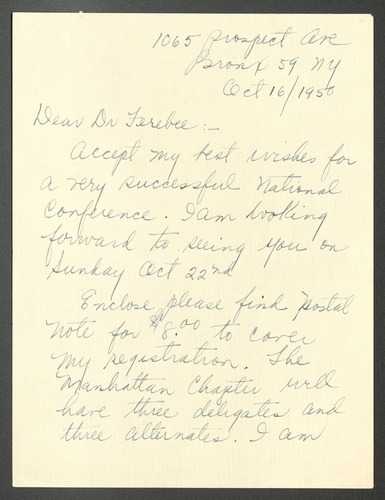 1065 Prospect Ave
Bronx 59 NY
Oct 16/1950
Dear Dr Ferebee:-
Accept my best wishes for
a very successful National
Conference. I am looking
forward to seeing you on
Sunday Oct 22nd
Enclose please find Postal
Note for $8.00 to cover
my registration. The
Manhattan Chapter will
have three deligates and
three alternates. I am